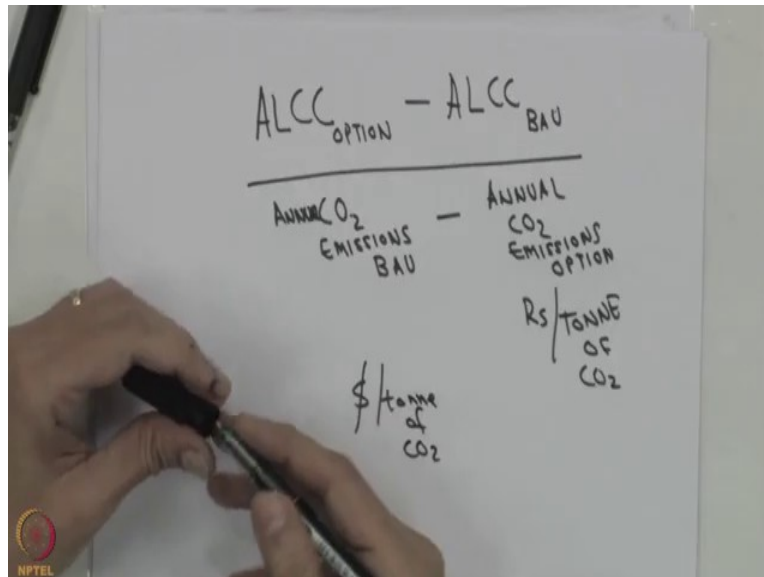 ALCC OPTION — ALCC BAU
ANNUAL CO2 EMISSIONS BAU — ANNUAL CO2 EMISSIONS OPTION
Rs/TONNE OF CO2
$/tonne of CO2
NPTEL